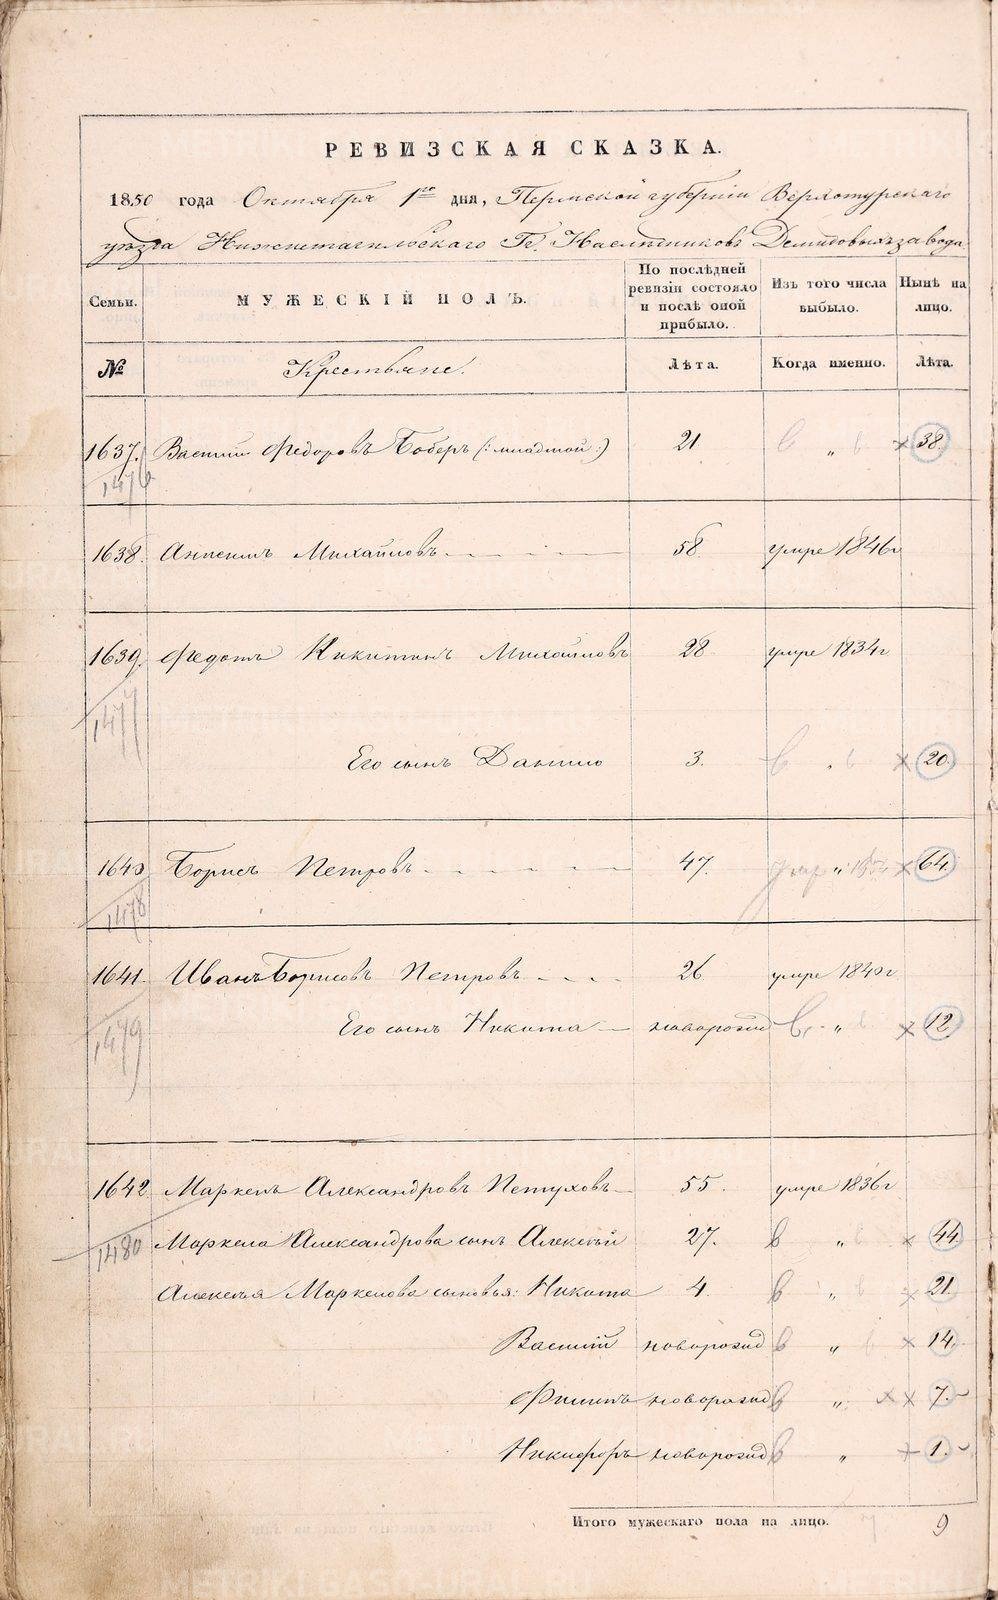 РЕВИЗСКАЯ СКАЗКА.
1850 года Октября 1го дня, Пермской губернiи Верхотурскаго
уѣзда Нижнетагильскаго Гг. Наслѣдниковъ Демидовыхъ завода
Семьи. МУЖЕСКIЙ ПОЛЪ. По послѣдней ревизiи состояло и послѣ оной прибыло. Изъ того числа выбыло. Нынѣ на лицо.
№ Крестьяне. Лѣта. Когда именно. Лѣта.
1637. Василiй Федоровъ Боберъ (: младшой :) 21 в „ в × 38.
1476
1638. Анисимъ Михайловъ 58 умре 1846г
1639. Федотъ Никитинъ Михайловъ 28 умре 1834г
1477
Его сынъ Данило 3. в „ в × 20
1640 Борисъ Петровъ 47. умр „ × 64.
1478
1641. Иванъ Борисовъ Петровъ 26 умре 1840г
Его сынъ Никита новорожд в „ в × 12
1479
1642 Маркелъ Александровъ Петуховъ 55. умре 1836г
1480 Маркела Александрова сынъ Алексѣй 27. в „ в × 44.
Алексѣя Маркелова сыновья: Никита 4. в „ в × 21.
Василiй новорожд в „ в × 14.
Филипъ новорожд в „ × × 7.
Никифоръ новорожд в „ + 1.
Итого мужескаго пола на лицо. 7 9